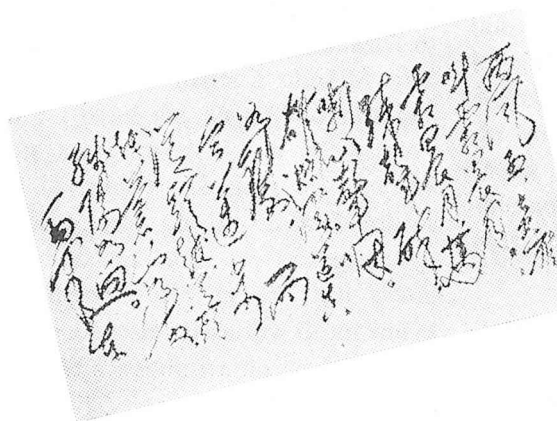 西风烈，长空雁
叫霜晨月。
霜晨月，馬
蹄声碎，
喇叭声咽。
雄关漫道真
如铁，而
今迈步
从头越。从头
越，苍山如海，
残阳如血。